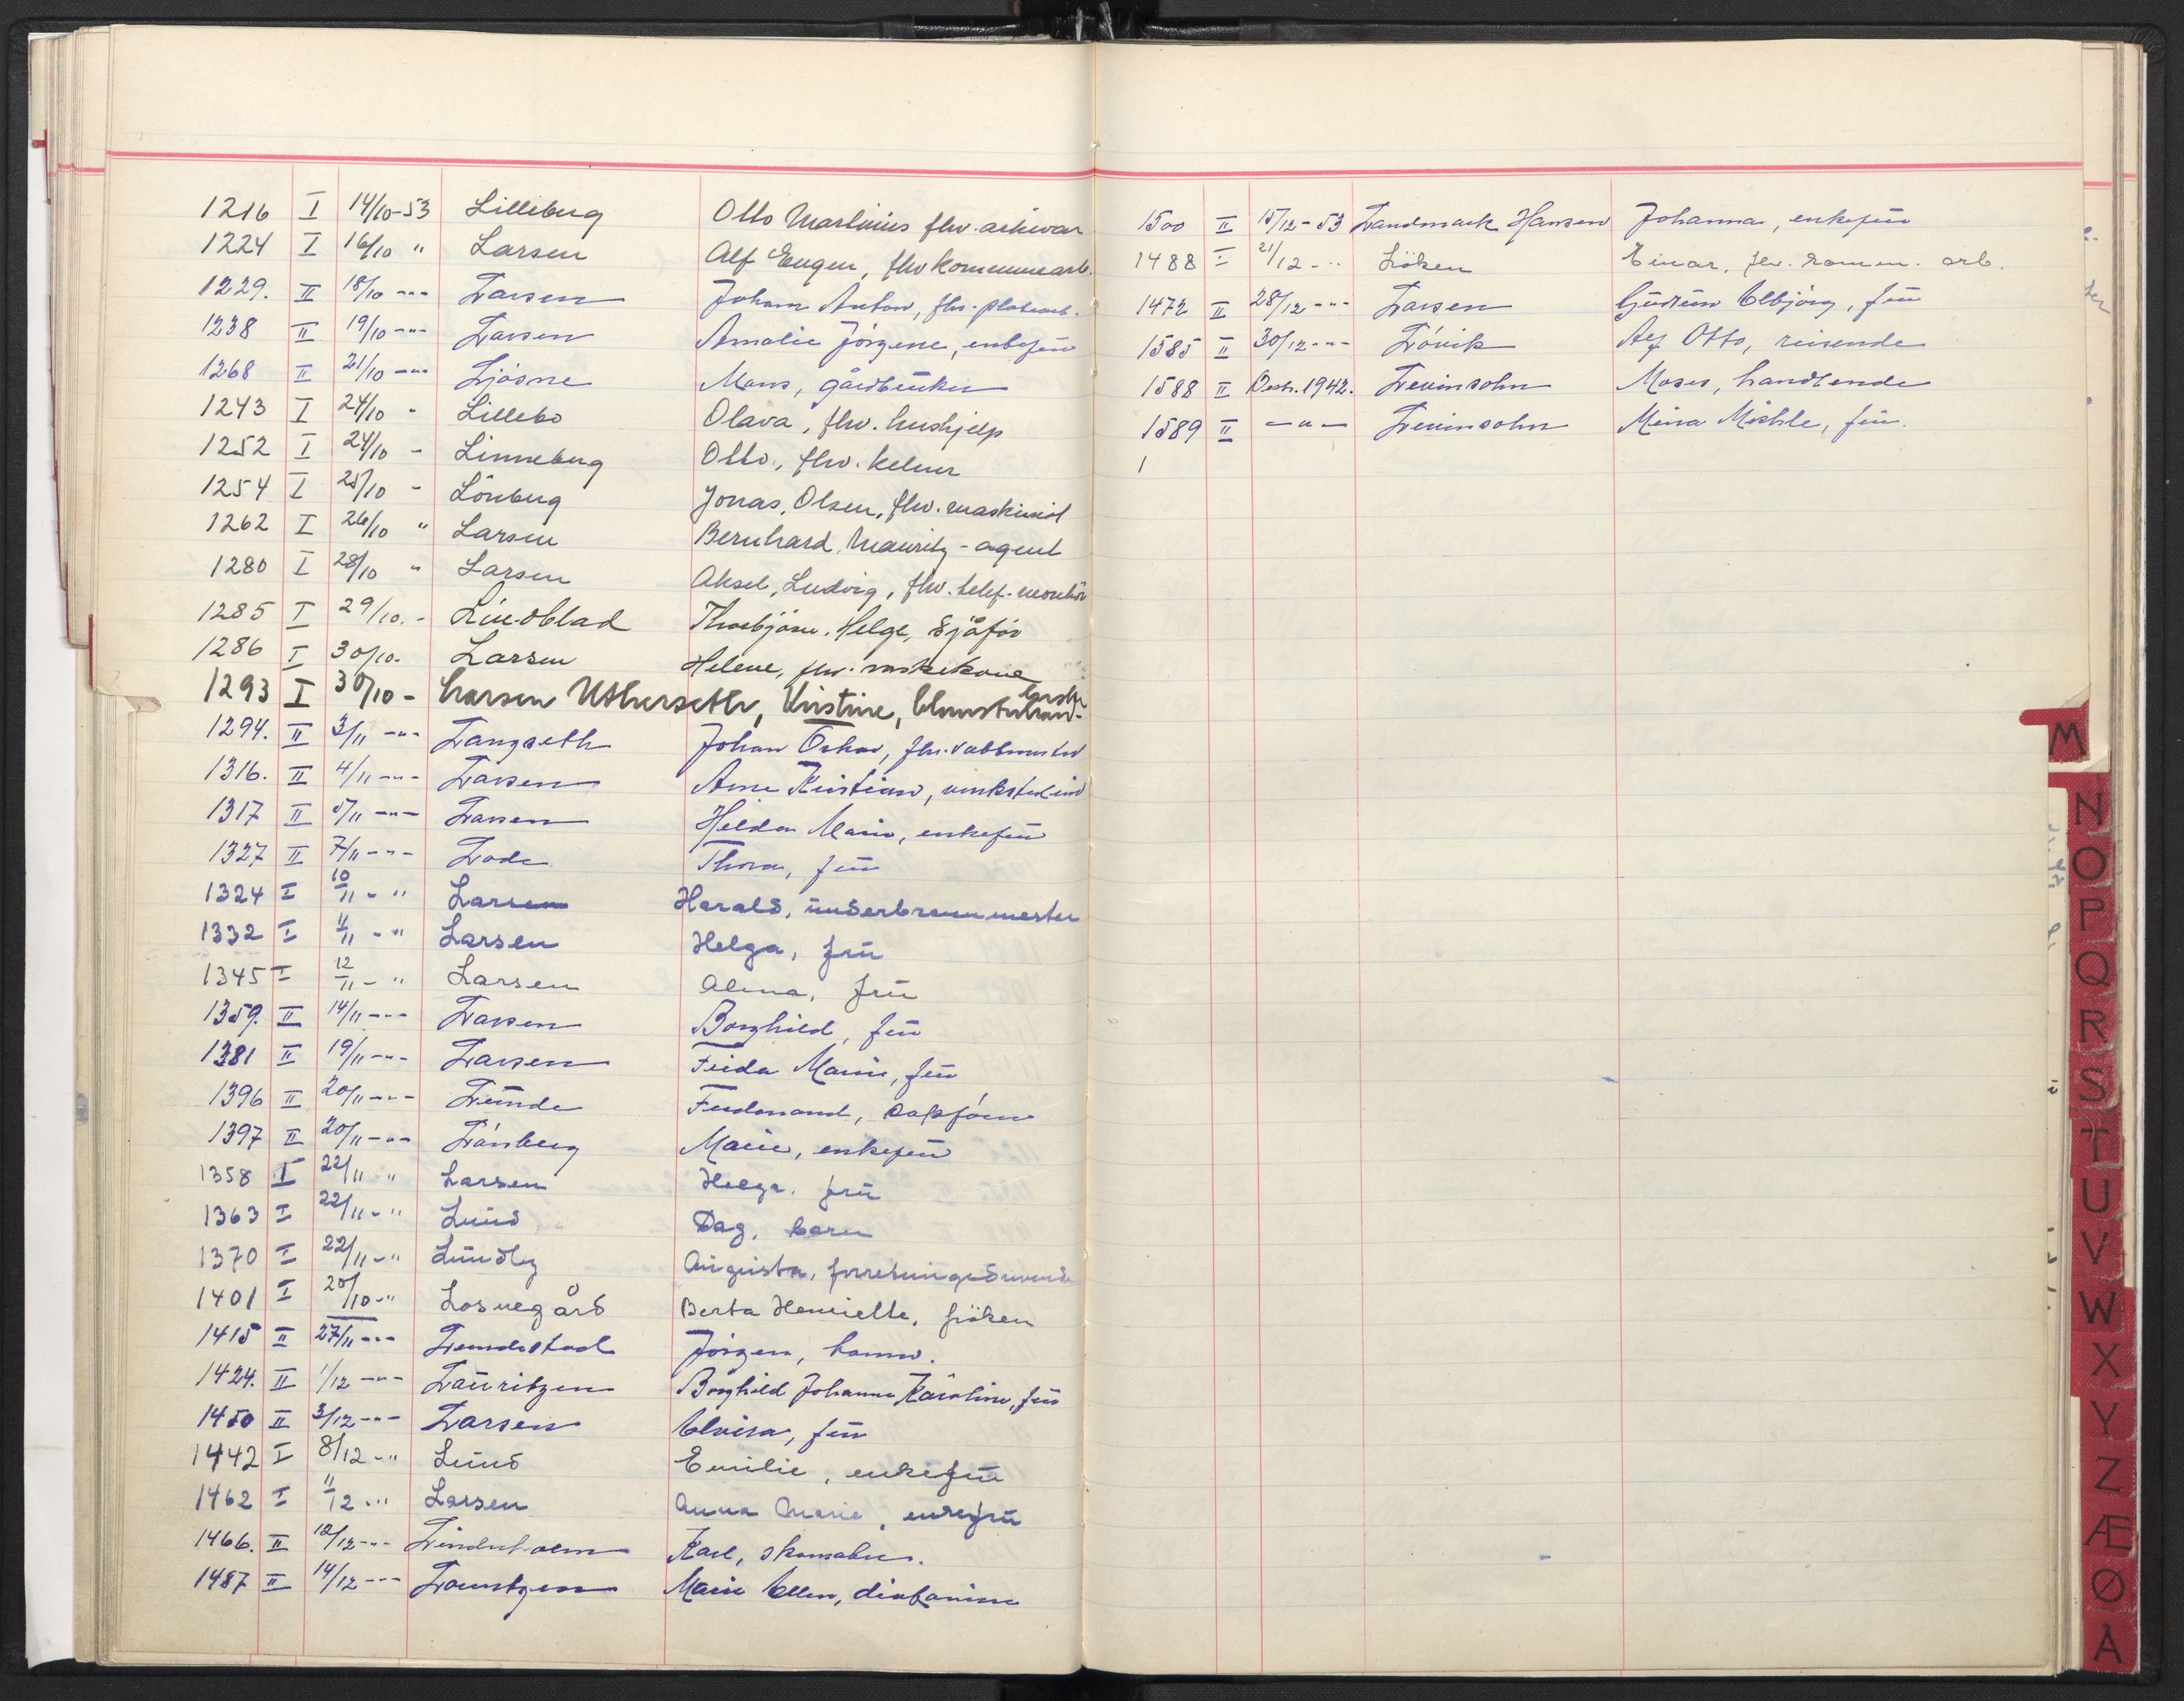 1216 I 14/10-53 Lilleberg Otto Martinius fhv. arkivar
1224 I 16/10 " Larsen Alf Eugen, fhv kommunearb.
1229. II 18/10 -"- Larsen Johan Anton, fhv. platearb.
1238 II 19/10 -"- Larsen Amalie Jörgene, enkefrü
1268 II 21/10 -"- Ljösne Mons, gårdbrüker
1243 I 24/10 - Lillebo Olava, fhv. hushjelp
1252 I 24/10 - Linneberg Otto, fhv. kelner
1254 I 25/10 - Lönberg Jonas, Olsen, fhv. maskinist
1262 I 26/10 " Larsen Bernhard, Mauritz - agent
1280 I 28/10 " Larsen Aksel, Ludvig, fhv. telef. montör
1285 I 29/10. - Lindblad Thorbjörn. Helge, Sjåför
1286 I 30/10. Larsen Helene, fhv. vaskekone
1293 I 30/10 - Larsen Kristine,
1294. II 3/11 -"- Langseth Johan Oskar, fhv.
1316. II 4/11 -"- Larsen Arne Kristian,
1317 II 5/11 -"- Larsen Hilda Marie, enkefrü
1327 II 7/11 -"- Lode Thora, frü
1324 I 10/11 - " Larsen Harald, ünderbrannmester
1332 I 11/11 - " Larsen Helga, frü
1345 I 12/11 - " Larsen Alma, frü
1359. II 14/11 -"- Larsen Borghild, frü
1381 II 19/11 -"- Larsen Frida Marie, frü
1396 II 20/11 -"- Lünde Ferdinand,
1397 II 20/11 -"- Lönberg Marie, enkefrü
1358 I 22/11 " Larsen Helga, frü
1363 I 22/11 - " Lünd Dag, barn
1370 I 22/11 - " Lündby Aügüsta,
1401 I 20/10 - " Losnegård Berta Henriette, fröken
1415 II 27/11 -"- Jörgen,
1424. II 1/12 -"- Laüritzen Borghild Johanne Karoline, frü
1450 II 3/12 -"- Larsen Elvira, frü
1442 I 8/12 - " Lünd Emilie, enkefrü
1462 I 11/12 - " Larsen Anna Marie, enkefrü
1466. II 12/12 -"- Karl, skomaker.
1487 II 14/12 -"- Laüritzen Marie Ellen, diakonisse
1500 II 15/12 - 53 Landmark Hansen Johanna, enkefrü
1488 I 21/12 - " Löken Einar, fhv. komm. arb.
1472 II 28/12 -"- Larsen Güdrün Elbjörg, frü
1585 II 30/12 -"- Lövik Alf Otto, reisende
1588 II Desbr. 1942. Levinsohn Moses, handlende
1589 II -"- Levinsohn Mina Michle, frü.
1
M
N
O
P
Q
R
S
T
U
V
W
X
Y
Z
Æ
Ø
Å